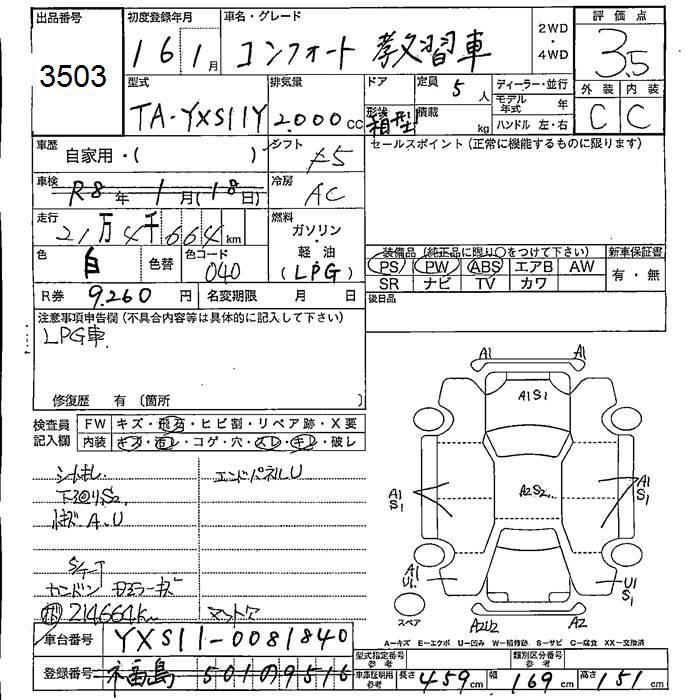 出品番号 初度登録年月 車名・グレード 2WD ・ 4WD 評価点
3503 16 1月 コンフォート 教習車 3.5
型式 排気量 ドア 定員 5人 ディーラー・並行 外装 内装
TA-YXS11Y 2.000cc 形状 箱型 積載 kg モデル年式 年 C C
ハンドル 左・右
車歴 自家用・( ) シフト F5 セールスポイント (正常に機能するものに限ります)
車検 R8年 1月(18日) 冷房 AC
走行 21万4千664km 燃料 ガソリン・軽油 (LPG)
色 白 色替 色コード 040
装備品 (純正品に限り○をつけて下さい) 新車保証書
PS PW ABS エアB AW 有・無
SR ナビ TV カワ
R券 9.260円 名変期限 月 日 後日品
注意事項申告欄 (不具合内容等は具体的に記入して下さい)
LPG車
修復歴 有 〔箇所 〕
検査員記入欄 FW キズ・飛石・ヒビ割・リペア跡・X要
内装 キズ・汚レ・コゲ・穴・スレ・キレ・破レ
エンドパネルU
下廻りS2
A.U
214664K
車台番号 YXS11-0081840
登録番号 福島 501の9516
A1 A1
A1S1
A2S2
A1 S1 A1 S1
A1 U1 U1 S1
スペア A2U2 A2
A−キズ E−エクボ U−凹み W−補修跡 S−サビ C−腐食 XX−交換済
型式指定番号 参考 類別区分番号 参考
車庫証明用 参考 長さ 459cm 幅 169cm 高さ 151cm